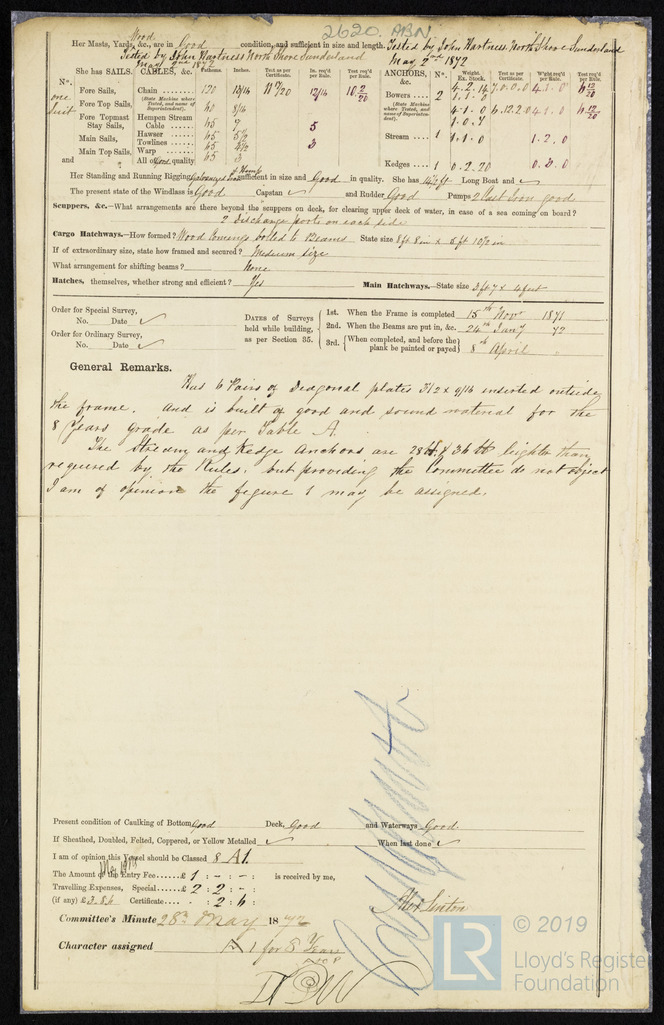 2620. PBN
Wood
Her Masts, Yards, &c., are in Good condition, and sufficient in size and length. Tested by John Hartness North Shore Sunderland
Tested by John Hartness North Shore Sunderland May 2nd 1872
May 2nd 1872
She has SAILS. CABLES, &c. Fathoms. Inches. Test as per Certificate. In. req'd per Rule. Test req'd per Rule. ANCHORS, &c. No. Weight. Ex. Stock. Test as per Certificate. W'ght req'd per Rule. Test req'd per Rule.
No.
one suit
Fore Sails, Chain 120 12/16 12/16 10 2/20
(State Machine where Tested, and name of Superintendent).
Bowers 2 4.2.14
Fore Top Sails, 60 8/16
(State Machine where Tested, and name of Superintendent).
4.1.0
Fore Topmast Stay Sails, Hempen Stream Cable 45 7 5
Main Sails, Hawser 45
Towlines 45 3
Stream 1 1.1.0 1.2.0
Main Top Sails, Warp 45
and " All of Good quality 45 3
Kedges 1 0.2.20 0.3.0
Her Standing and Running Rigging Galvanized Iron & Hemp sufficient in size and Good in quality. She has 14½ ft Long Boat and ✓
The present state of the Windlass is Good Capstan ✓ and Rudder Good Pumps 2 Cast Iron good
Scuppers, &c.—What arrangements are there beyond the scuppers on deck, for clearing upper deck of water, in case of a sea coming on board?
2 Discharge ports on each side
Cargo Hatchways.—How formed? Wood Comings bolted to Beams State size 8ft 8in x
If of extraordinary size, state how framed and secured? Medium size
What arrangement for shifting beams? None
Hatches, themselves, whether strong and efficient? Yes Main Hatchways.—State size 3ft 7 x 4 feet
Order for Special Survey,
No. Date ✓
Order for Ordinary Survey,
No. Date ✓
DATES of Surveys held while building, as per Section 35.
1st. When the Frame is completed 15th Novr 1871
2nd. When the Beams are put in, &c. 24th Jany 72
3rd. When completed, and before the plank be painted or payed 8th April "
General Remarks.
Has 6 Pairs of Diagonal plates 3½ x 9/16 inserted outside
the frame. And is built of good and sound material for the
8 Years grade as per Table A.
The Stream and Kedge Anchors are 28 lb & 36 lb lighter than
required by the Rules. but providing the Committee do not object
I am of opinion the figure 1 may be assigned.
Present condition of Caulking of Bottom Good Deck, Good and Waterways Good.
If Sheathed, Doubled, Felted, Coppered, or Yellow Metalled ✓ When last done ✓
I am of opinion this Vessel should be Classed 8 A1.
The Amount of the Entry Fee £ 1 : - : - is received by me,
Travelling Expenses, Special £ 2 : 2 : - :
(if any) £3.8.6 Certificate : 2 : 6
Committee's Minute 28th May 1872
Character assigned A 1 for 8 Years
© 2019
LR
Lloyd's Register
Foundation